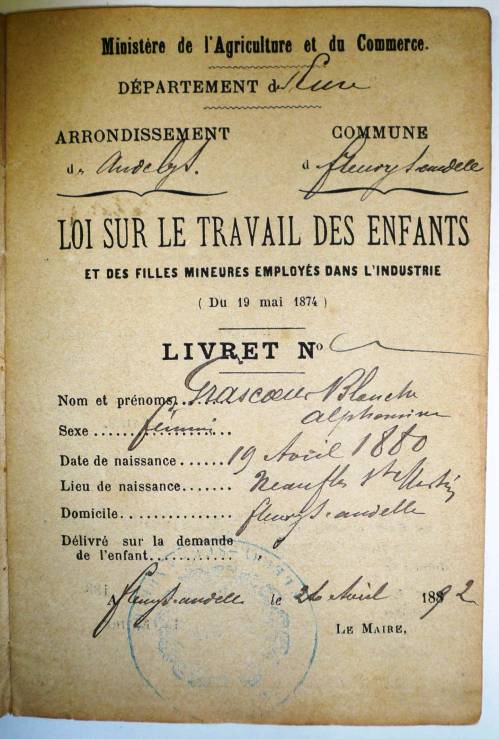 Ministère de l'Agriculture et du Commerce.
DÉPARTEMENT de l'Eure
ARRONDISSEMENT COMMUNE
des Andelys. d fleury s. andelle
LOI SUR LE TRAVAIL DES ENFANTS
ET DES FILLES MINEURES EMPLOYÉS DANS L'INDUSTRIE
( Du 19 mai 1874 )
LIVRET No
Nom et prénoms. Blanche
alphonsine
Sexe féminin
Date de naissance 19 Avril 1880
Lieu de naissance Neaufles St Martin
Domicile fleury s. andelle
Délivré sur la demande
de l'enfant
A fleury s. andelle le 26 Avril 1892
LE MAIRE,